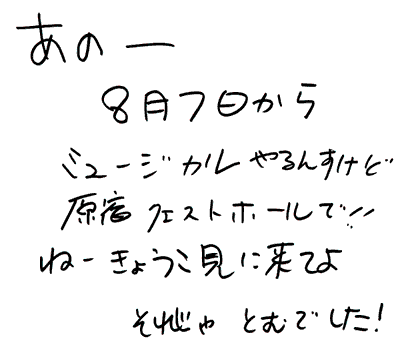 あのー
8月7日から
ミュージカルやるんすけど
原宿クエストホールで!!
ねーきょうこ見に来てよ
それじゃ とむでした!